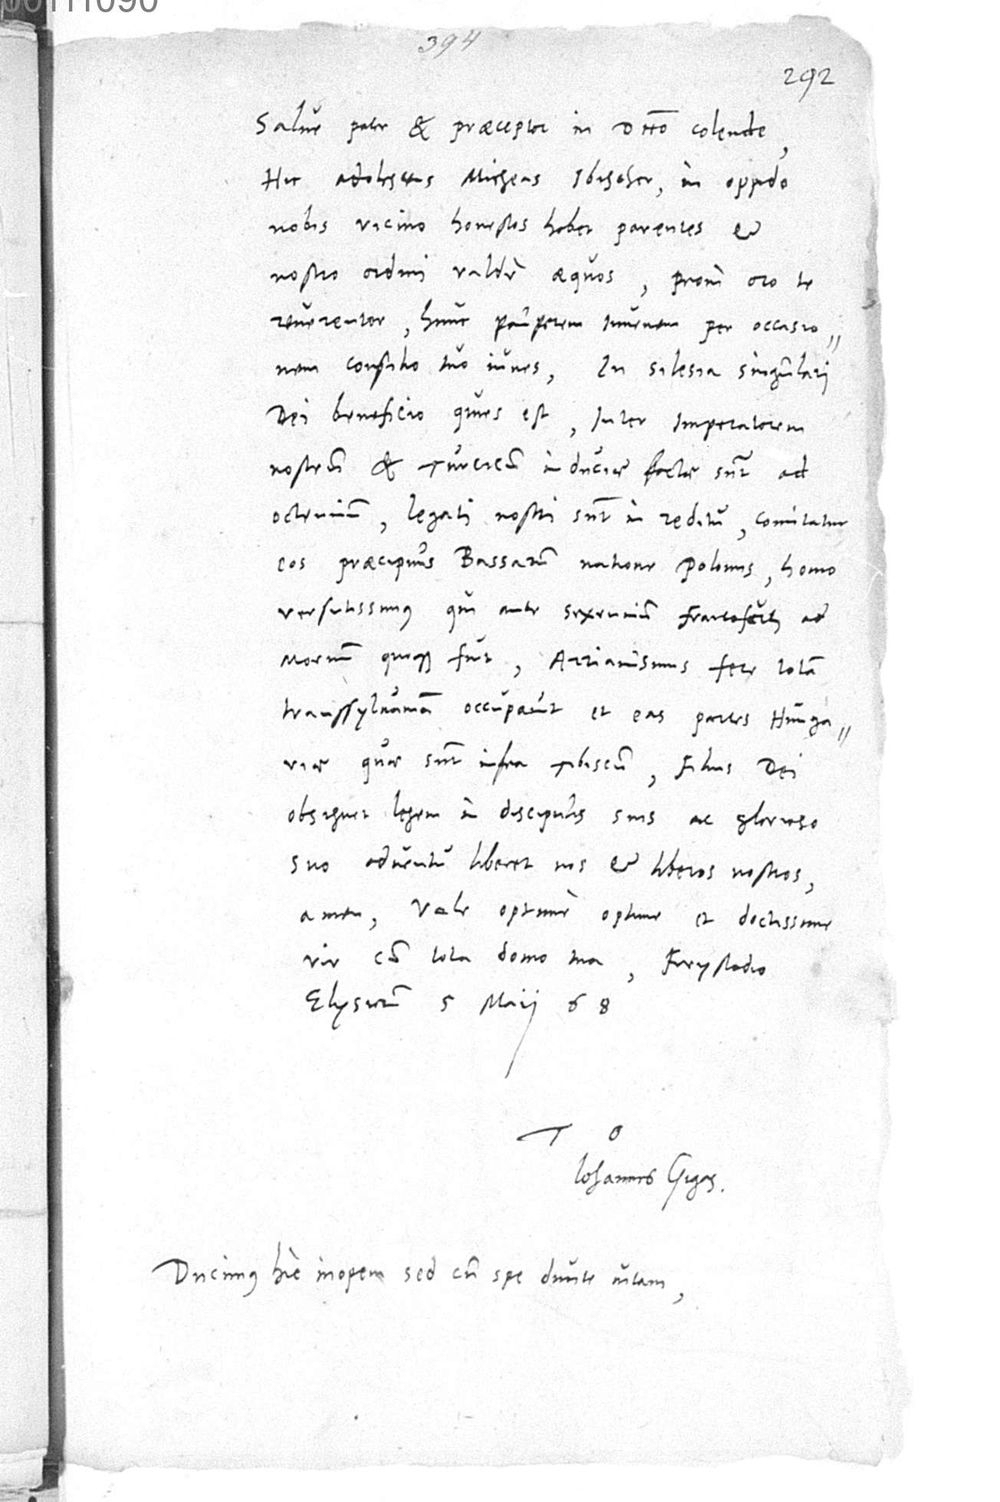 394
292
Salue pater & præceptor in Dño colende,
Hic adolescens Micheas Ibischer, in oppido
nobis vicino honestos habet parentes et
nostro ordini valdè æquos, proin oro te
reuerenter, hunc pauperem iuuenem per occasio„
nem consilio tuo iuues, In silesia singulari
Dei beneficio quies est, Inter Imperatorem
nostrũ & Turcicũ induciæ factæ sũt ad
octenniũ, legati nostri sũt in reditu, comitatur
eos præcipuus Bassarũ natione Polonus, homo
versutissimꝰ qui ante sexenniũ Francofurti ad
Moenũ quoqꝫ fuit, Arrianismus fere totã
transsyluaniã occupauit et eas partes Hunga„
riæ quæ sũt infra Tibiscũ, Filius Dei
obsignet legem in discipulis suis ac glorioso
suo aduentu liberet nos et liberos nostros,
amen, Vale optimè optime et doctissime
vir cũ tota domo tua, Freystadio
Elysiorũ 5 Maij 68
T O
Iohannes Gigas.
Ducimꝰ hic inopem sed cũ spe diuite uitam,